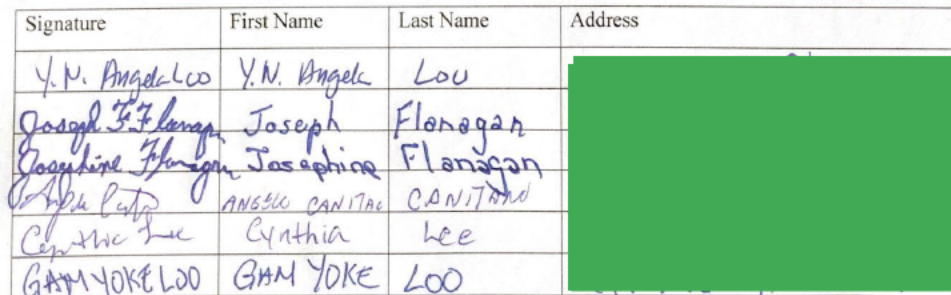 Signature First Name Last Name Address
Y.N. Angela Loo Y.N. Angela Lou
Joseph F Flanagan Joseph Flanagan
Josephine Flanagan Josephine Flanagan
ANGELO CANITAO CANITANO
Cynthia Lee Cynthia Lee
GAM YOKE LOO GAM YOKE LOO